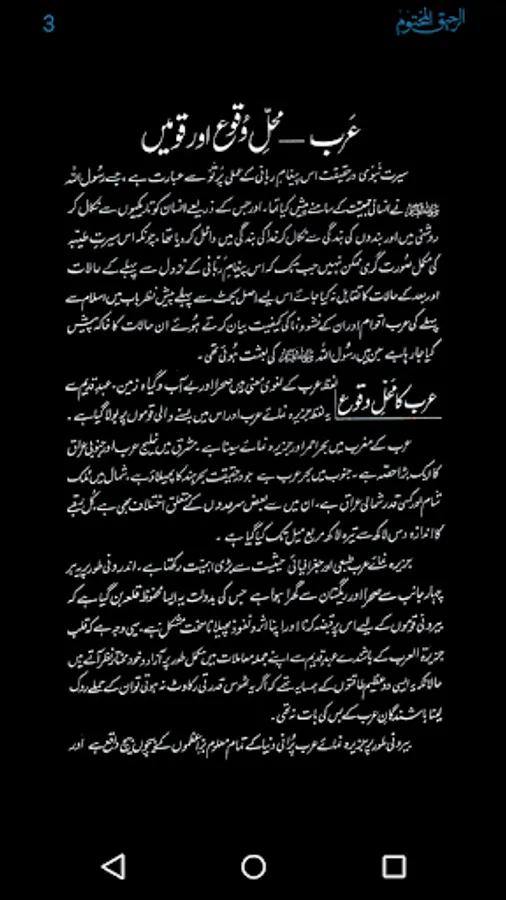 3
الرحیق المختوم
عَرب — محلِّ وُقوع اور قومیں
سیرتِ نَبوِی درحقیقت اس پیغامِ ربانی کے عملی پَر تَو سے عبارت ہے، جسے رسُول اللہ
ﷺ نے انسانی جمعیت کے سامنے پیش کیا تھا۔ اور جس کے ذریعے انسان کو تاریکیوں سے نکال کر
روشنی میں اور بندوں کی بندگی سے نکال کر خُدا کی بندگی میں داخل کر دیا تھا۔ چونکہ اس سیرتِ طیبہ
کی مکمل صُورت گری ممکن نہیں جب تک کہ اس پیغامِ رَبّانی کے نزول سے پہلے کے حالات
اور بعد کے حالات کا تقابل نہ کیا جائے اس لیے اصل بحث سے پہلے پیشِ نظر باب میں اسلام سے
پہلے کی عرب اقوام اور ان کے نشوونما کی کیفیت بیان کرتے ہُوئے ان حالات کا خاکہ پیش
کیا جا رہا ہے جن میں رسُول اللہ ﷺ کی بعثت ہُوئی تھی۔
عرب کا محلِّ وقوع
لفظ عرب کے لغوی معنی ہیں صحرا اور بے آب و گیاہ زمین۔ عہدِ قدیم سے
یہ لفظ جزیرہ نمائے عرب اور اس میں بسنے والی قوموں پر بولا گیا ہے۔
عرب کے مغرب میں بحرِ احمر اور جزیرہ نمائے سینا ہے۔ مشرق میں خلیج عرب اور جنوبی عراق
کا ایک بڑا حصّہ ہے۔ جنوب میں بحرِ عرب ہے جو درحقیقت بحرِ ہند کا پھیلاؤ ہے، شمال میں مُلک
شام اور کسی قدر شمالی عراق ہے۔ ان میں سے بعض سرحدوں کے متعلق اختلاف بھی ہے، کُل رقبے
کا اندازہ دس لاکھ سے تیرہ لاکھ مربع میل تک کیا گیا ہے۔
جزیرہ نمائے عرب طبعی اور جغرافیائی حیثیت سے بڑی اہمیّت رکھتا ہے۔ اندرونی طور پر یہ ہر
چہار جانب سے صحرا اور ریگستان سے گھرا ہوا ہے جس کی بدولت یہ ایسا محفوظ قلعہ بن گیا ہے کہ
بیرونی قوموں کے لیے اس پر قبضہ کرنا اور اپنا اثر و نفوذ پھیلانا سخت مشکل ہے، یہی وجہ ہے کہ قلب
جزیرۃ العرب کے باشندے عہدِ قدیم سے اپنے جملہ معاملات میں مکمل طور پر آزاد و خود مختار نظر آتے ہیں
حالانکہ یہ ایسی دو عظیم طاقتوں کے ہمسایہ تھے کہ اگر یہ ٹھوس قدرتی رکاوٹ نہ ہوتی تو ان کے حملے روک
لینا باشندگانِ عرب کے بس کی بات نہ تھی۔
بیرونی طور پر جزیرہ نمائے عرب پُرانی دنیا کے تمام معلوم براعظموں کے بیچوں بیچ واقع ہے اور